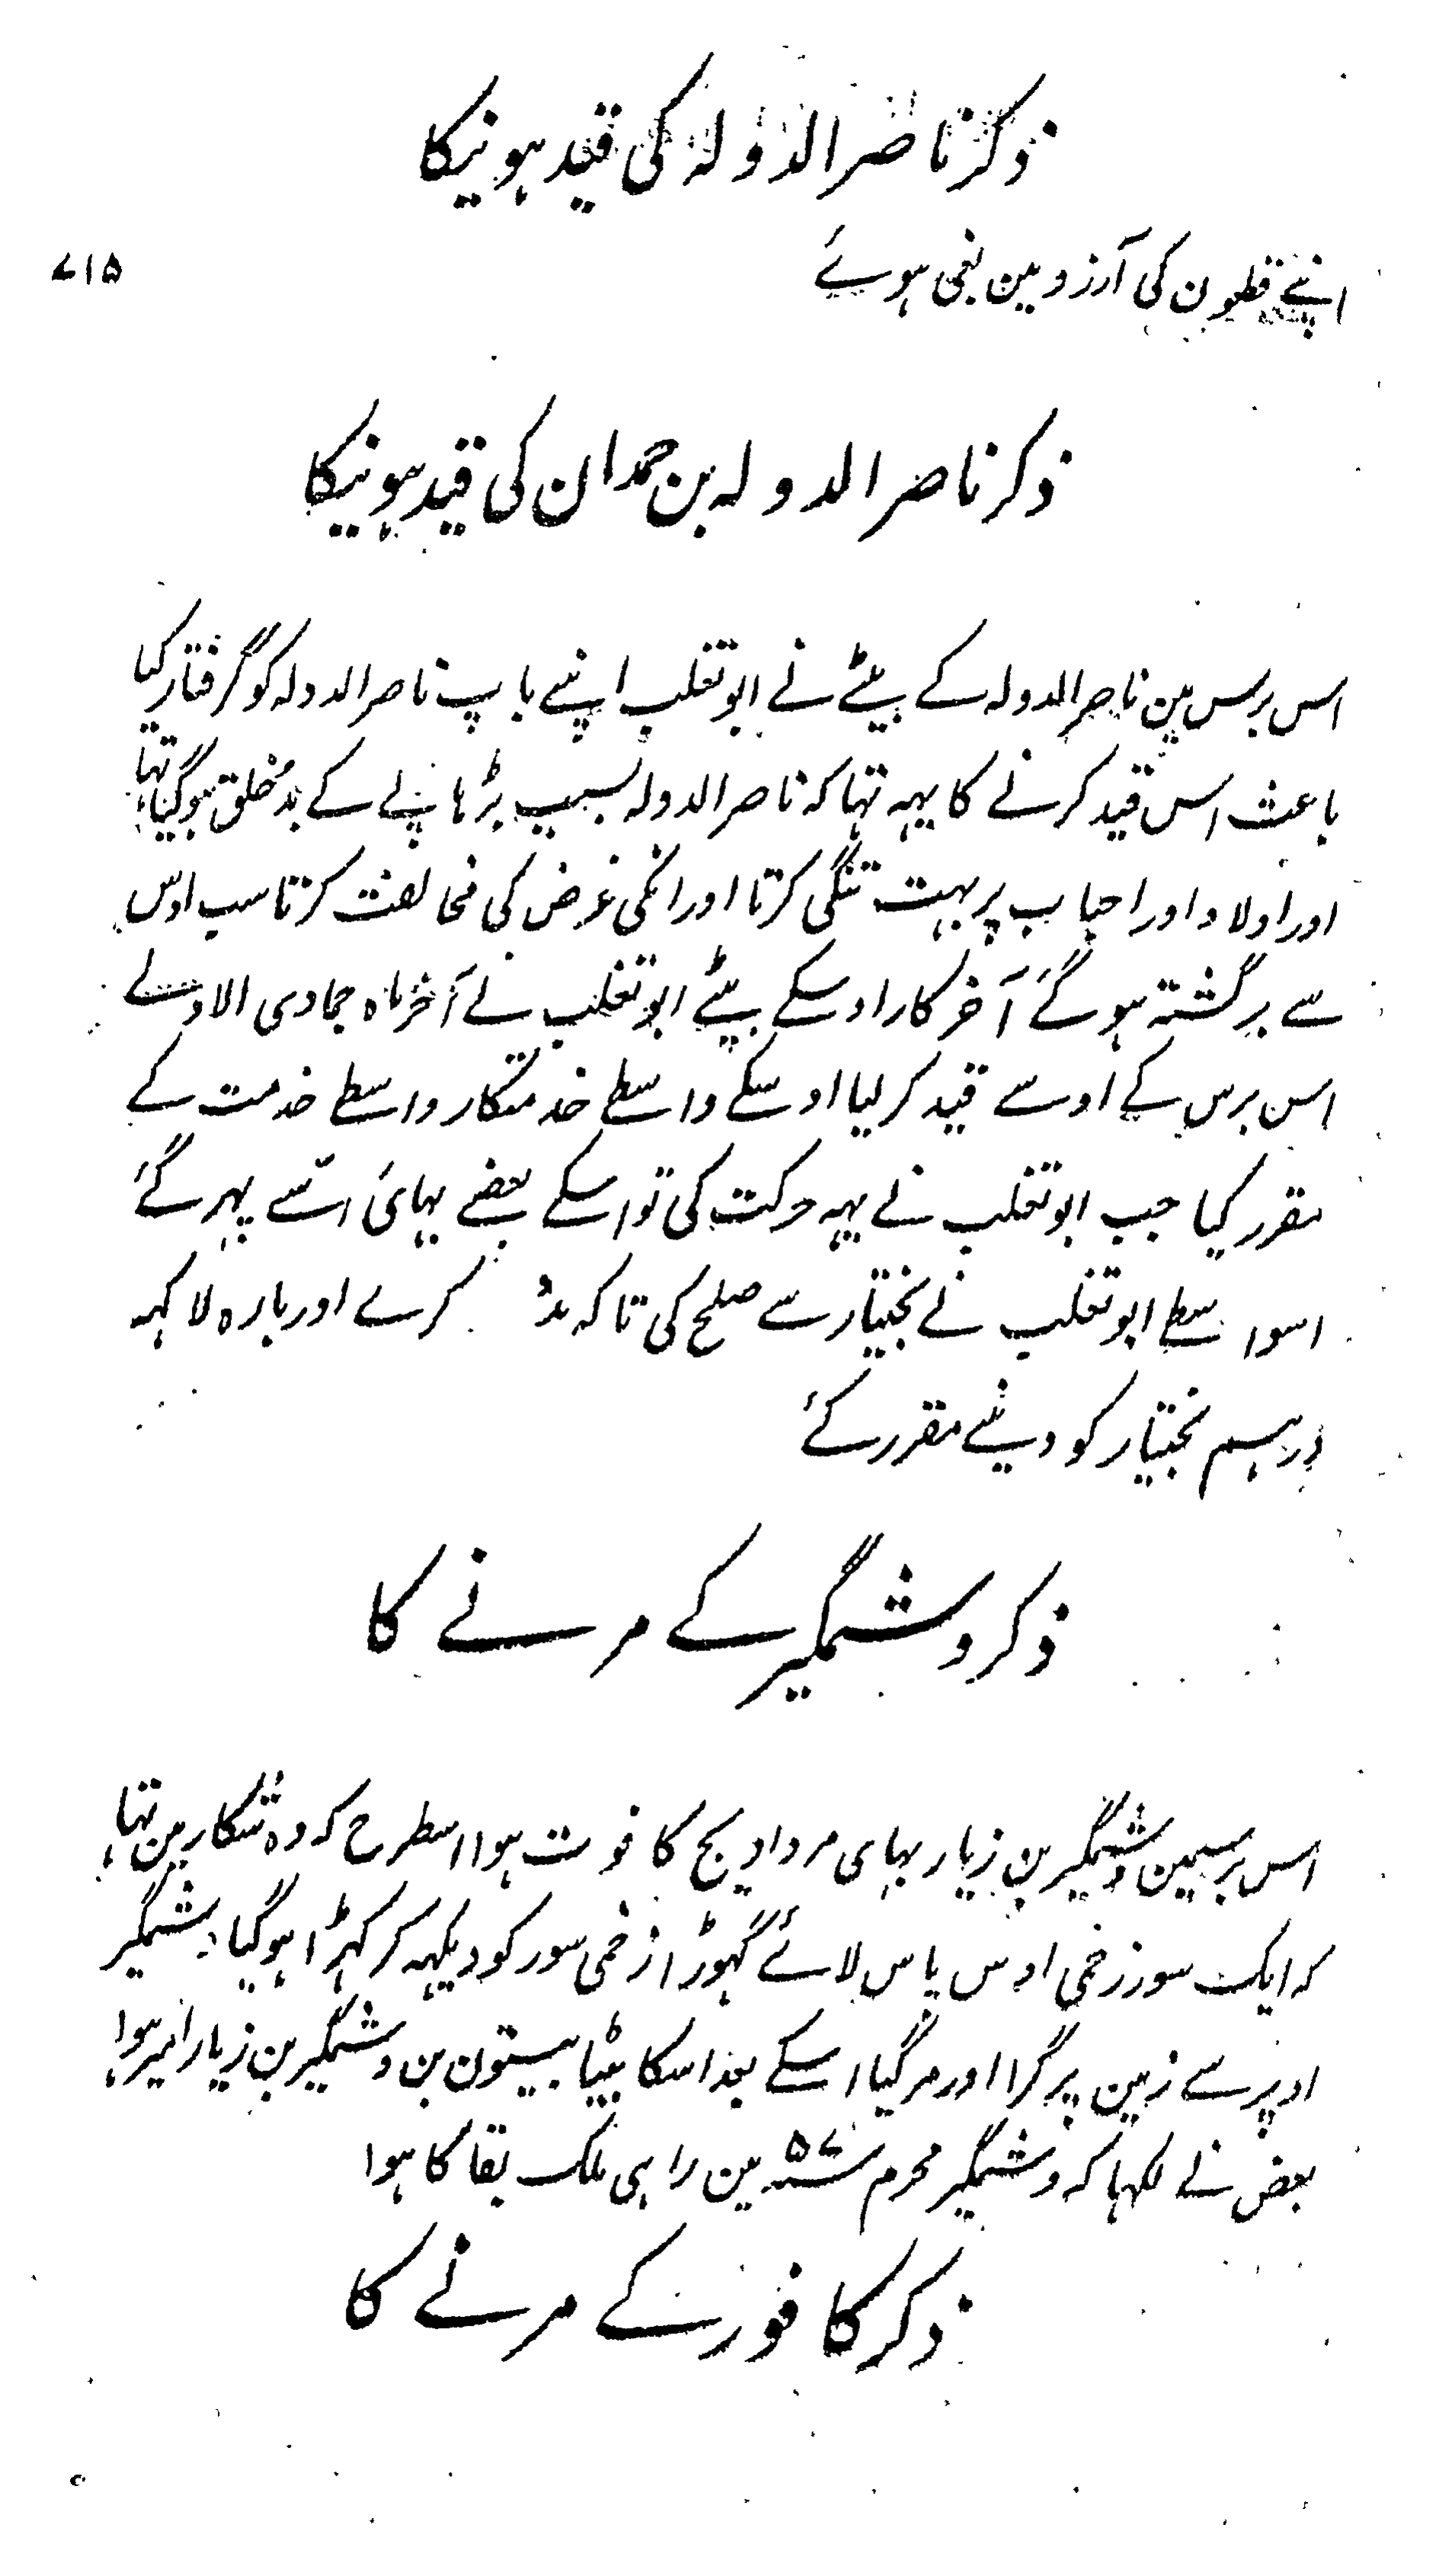 ذکر ناصر الدولہ کی قید ہونیکا
۷۱۵
اپنے قطون کی آرزو مین نعی ہوئے
ذکر ناصر الدولہ بن حمدان کی قید ہونیکا
اس برس مین ناصر الدولہ کے بیٹے نے ابو تغلب اپنے باپ ناصر الدولہ کو گرفتار کیا
باعث اس قید کرنے کا یہہ تہا کہ ناصر الدولہ بسبب بڑھاپے کے بد خلق ہو گیا تہا
اور اولاد اور احباب پر بہت تنگی کرتا اور انکی غرض کی مخالفت کرتا سب اوس
سے برگشتہ ہو گئے آخر کار اوسکے بیٹے ابو تغلب نے آخر ماہ جمادی الاولے
اس برس کے اوسے قید کر لیا اوسکے واسطے خدمتگار واسطے خدمت کے
مقرر کیا جب ابو تغلب نے یہہ حرکت کی تو اسکے بعضے بہائی اسّے پہر گئے
اسواسطے ابو تغلب نے بختیار سے صلح کی تاکہ مدد کرے اور بارہ لاکہہ
درہم بختیار کو دینے مقرر کئے
ذکر وشمگیر کے مرنے کا
اس برسمین وشمگیر بن زیار بہای مرداویج کا فوت ہوا اسطرح کہ وہ شکار مین تہا
کہ ایک سور زخمی اوس پاس لائے گہوڑا زخمی سور کو دیکہہ کر کہڑا ہو گیا وشمگیر
اوپر سے زمین پر گرا اور مر گیا اسکے بعد اسکا بیٹا بیستون بن وشمگیر بن زیار امیر ہوا
بعض نے لکہا کہ وشمگیر محرم ۵۷؁ مین راہی ملک بقا کا ہوا
ذکر کافور کے مرنے کا